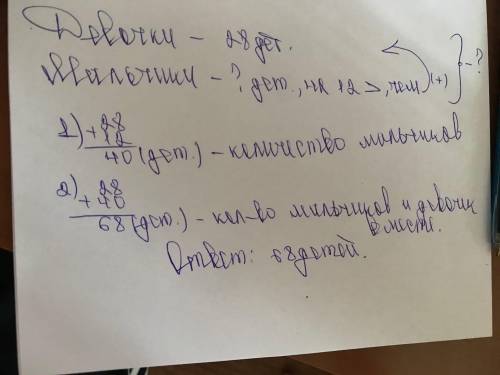 Девочки – 28 дет.
Мальчики – ?, дет., на 12 >, чем (+) } – ?
1) + 28
12
40 (дет.) – количество мальчиков
2) 28
+ 40
68 (дет.) – кол-во мальчиков и девочек
вместе.
Ответ: 68 детей.